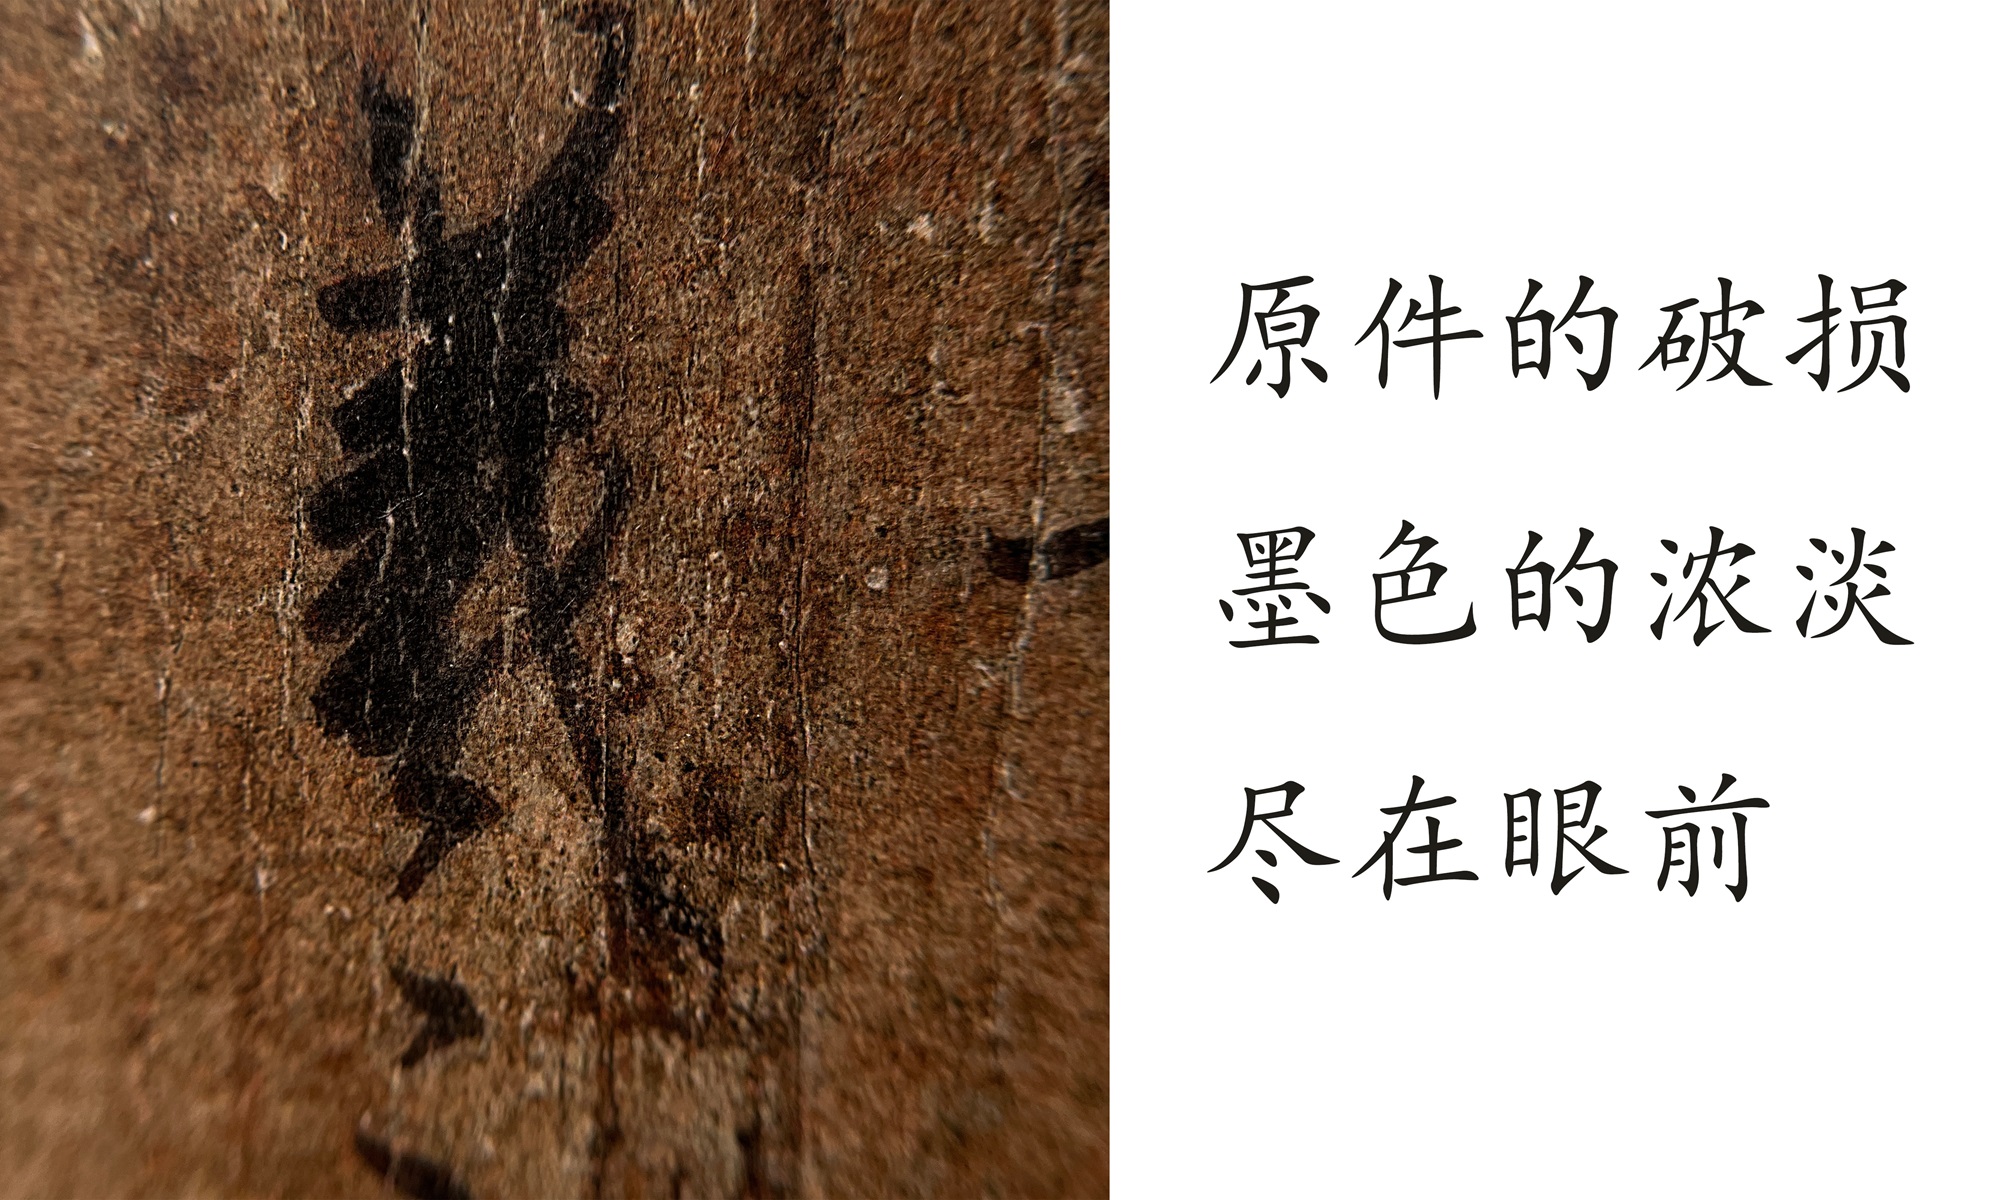 原件的破损
墨色的浓淡
尽在眼前